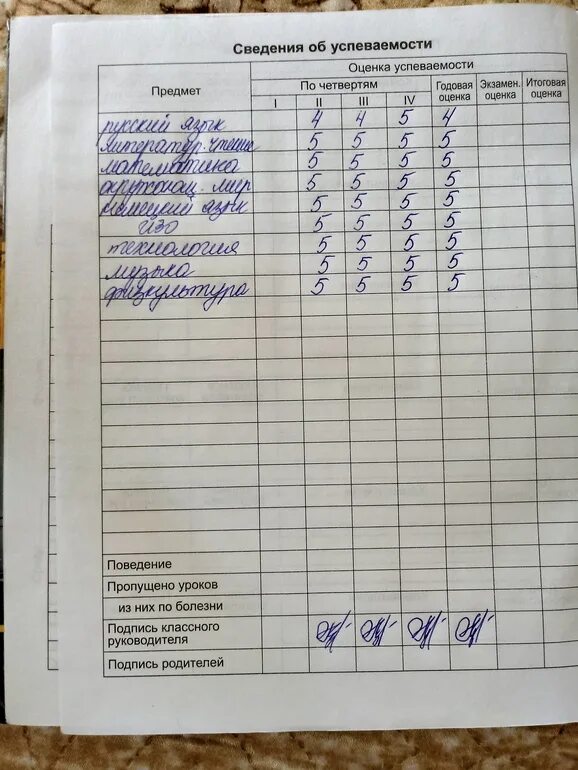 Сведения об успеваемости
Предмет Оценка успеваемости
По четвертям Годовая оценка Экзамен. оценка Итоговая оценка
I II III IV
русский язык 4 4 5 4
литератур. чтение 5 5 5 5
математика 5 5 5 5
окружающ. мир 5 5 5 5
немецкий язык 5 5 5 5
ИЗО 5 5 5 5
технология 5 5 5 5
музыка 5 5 5 5
физкультура 5 5 5 5
Поведение
Пропущено уроков
из них по болезни
Подпись классного
руководителя
Подпись родителей